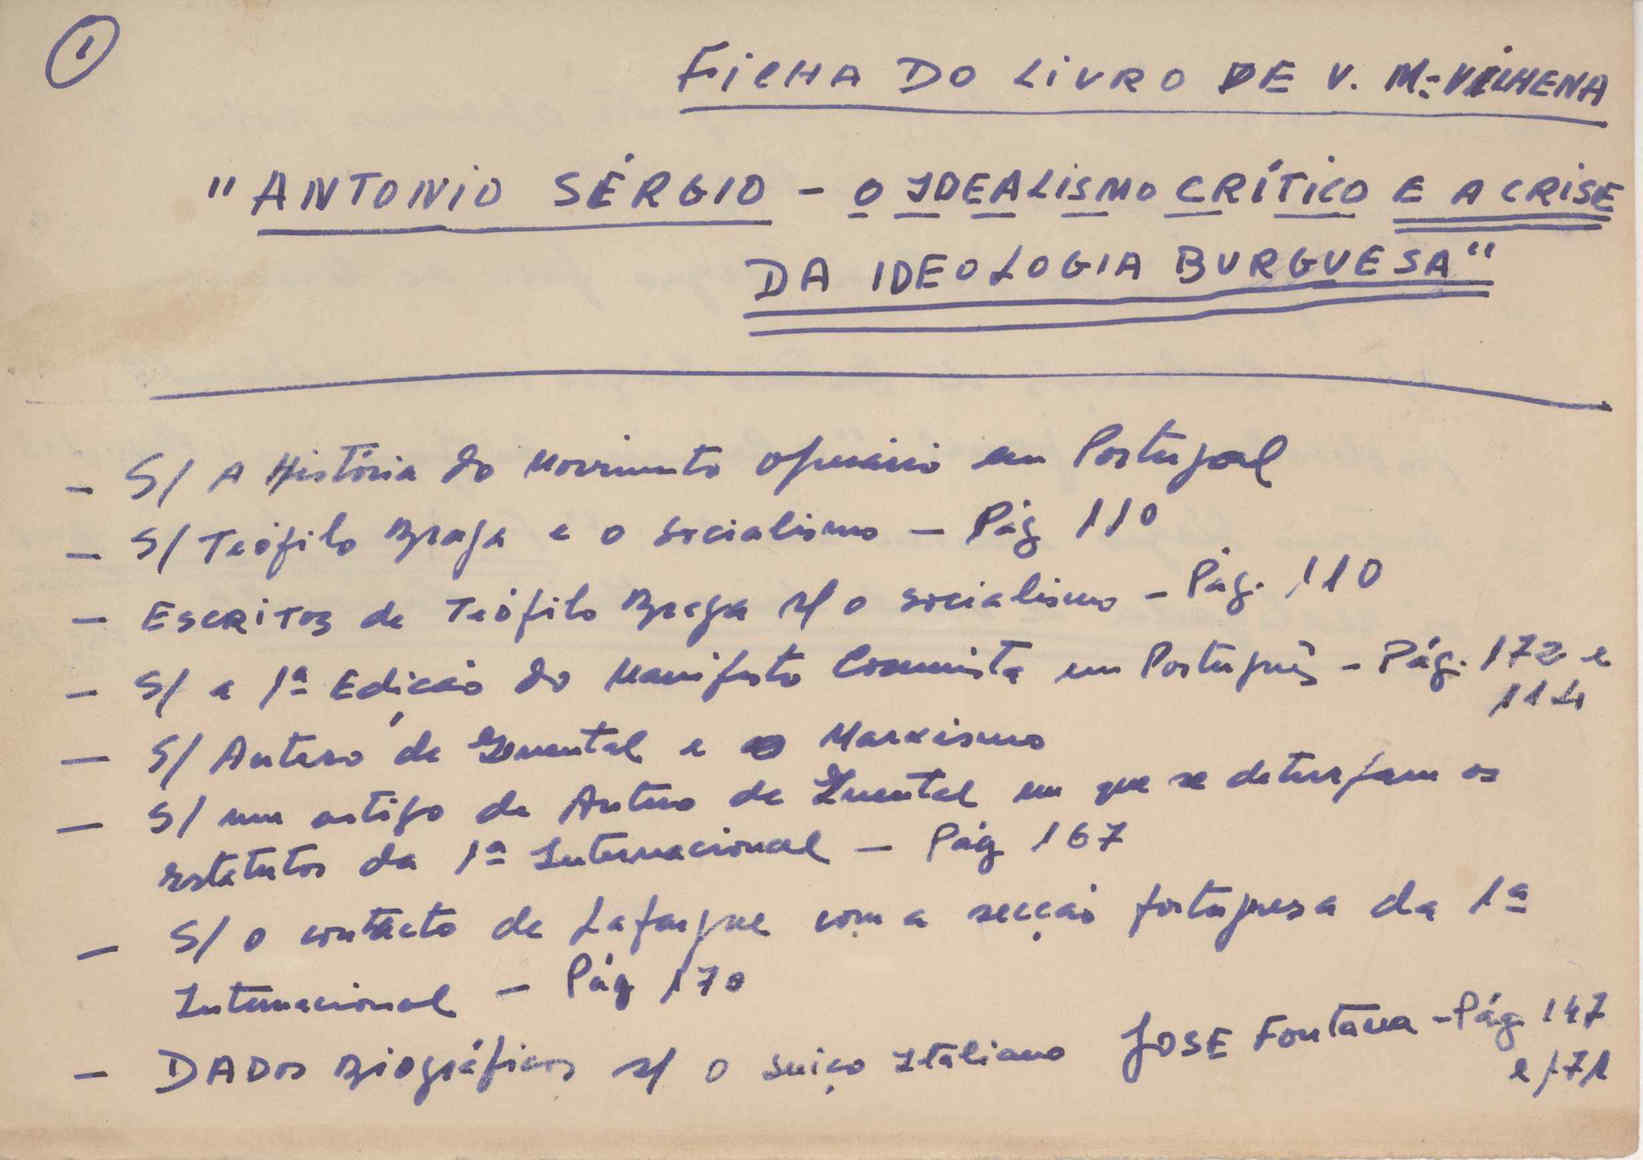 1
FICHA DO LIVRO DE V. M. VILHENA
"ANTONIO SÉRGIO - O IDEALISMO CRÍTICO E A CRISE
DA IDEOLOGIA BURGUESA"
- S/ A História do Movimento operário em Portugal
- S/ Teófilo Braga e o socialismo - Pág 110
- ESCRITOS de Teófilo Braga s/ o socialismo - Pág. 110
- S/ a 1ª Edição do Manifesto Comunista em Português - Pág. 172 e
114
- S/ Antero de Quental e o Marxismo
- S/ um artigo de Antero de Quental em que se deturpam os
estatutos da 1ª Internacional - Pág 167
- S/ o contacto de Lafargue com a secção portuguesa da 1ª
Internacional - Pág 170
- DADOS Biográficos s/ o suiço Italiano JOSE Fontana - Pág 147
e 171